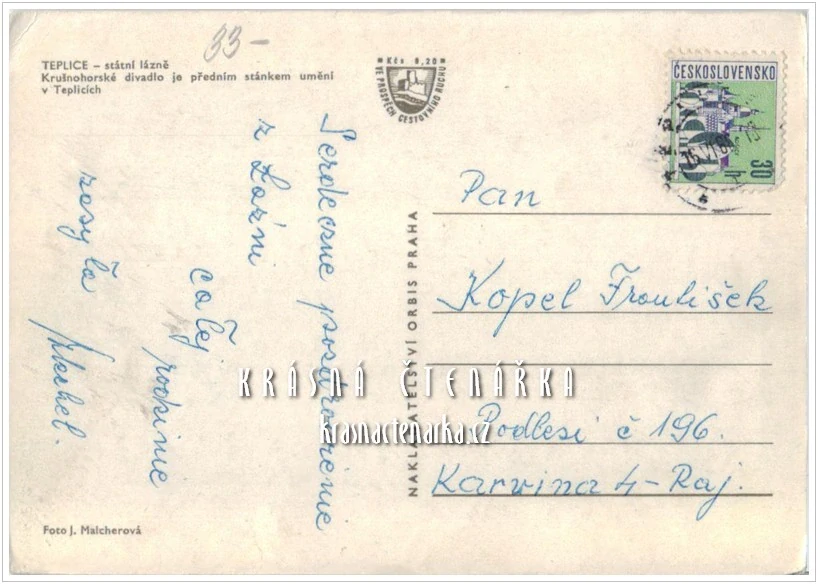 33-
TEPLICE – státní lázně
Krušnohorské divadlo je předním stánkem umění
v Teplicích
Kčs 0,20
VE PROSPĚCH CESTOVNÍHO RUCHU
ČESKOSLOVENSKO
30 h
Serdeczne pozdrowienie
z Łaźni
całej rodzinie
zasyła
NAKLADATELSTVÍ ORBIS PRAHA
Pan
Kopel Frontišek
Podlesí č 196.
Karvina 4-Raj.
KRÁSNÁ ČTENÁŘKA
krasnactenarka.cz
Foto J. Malcherová